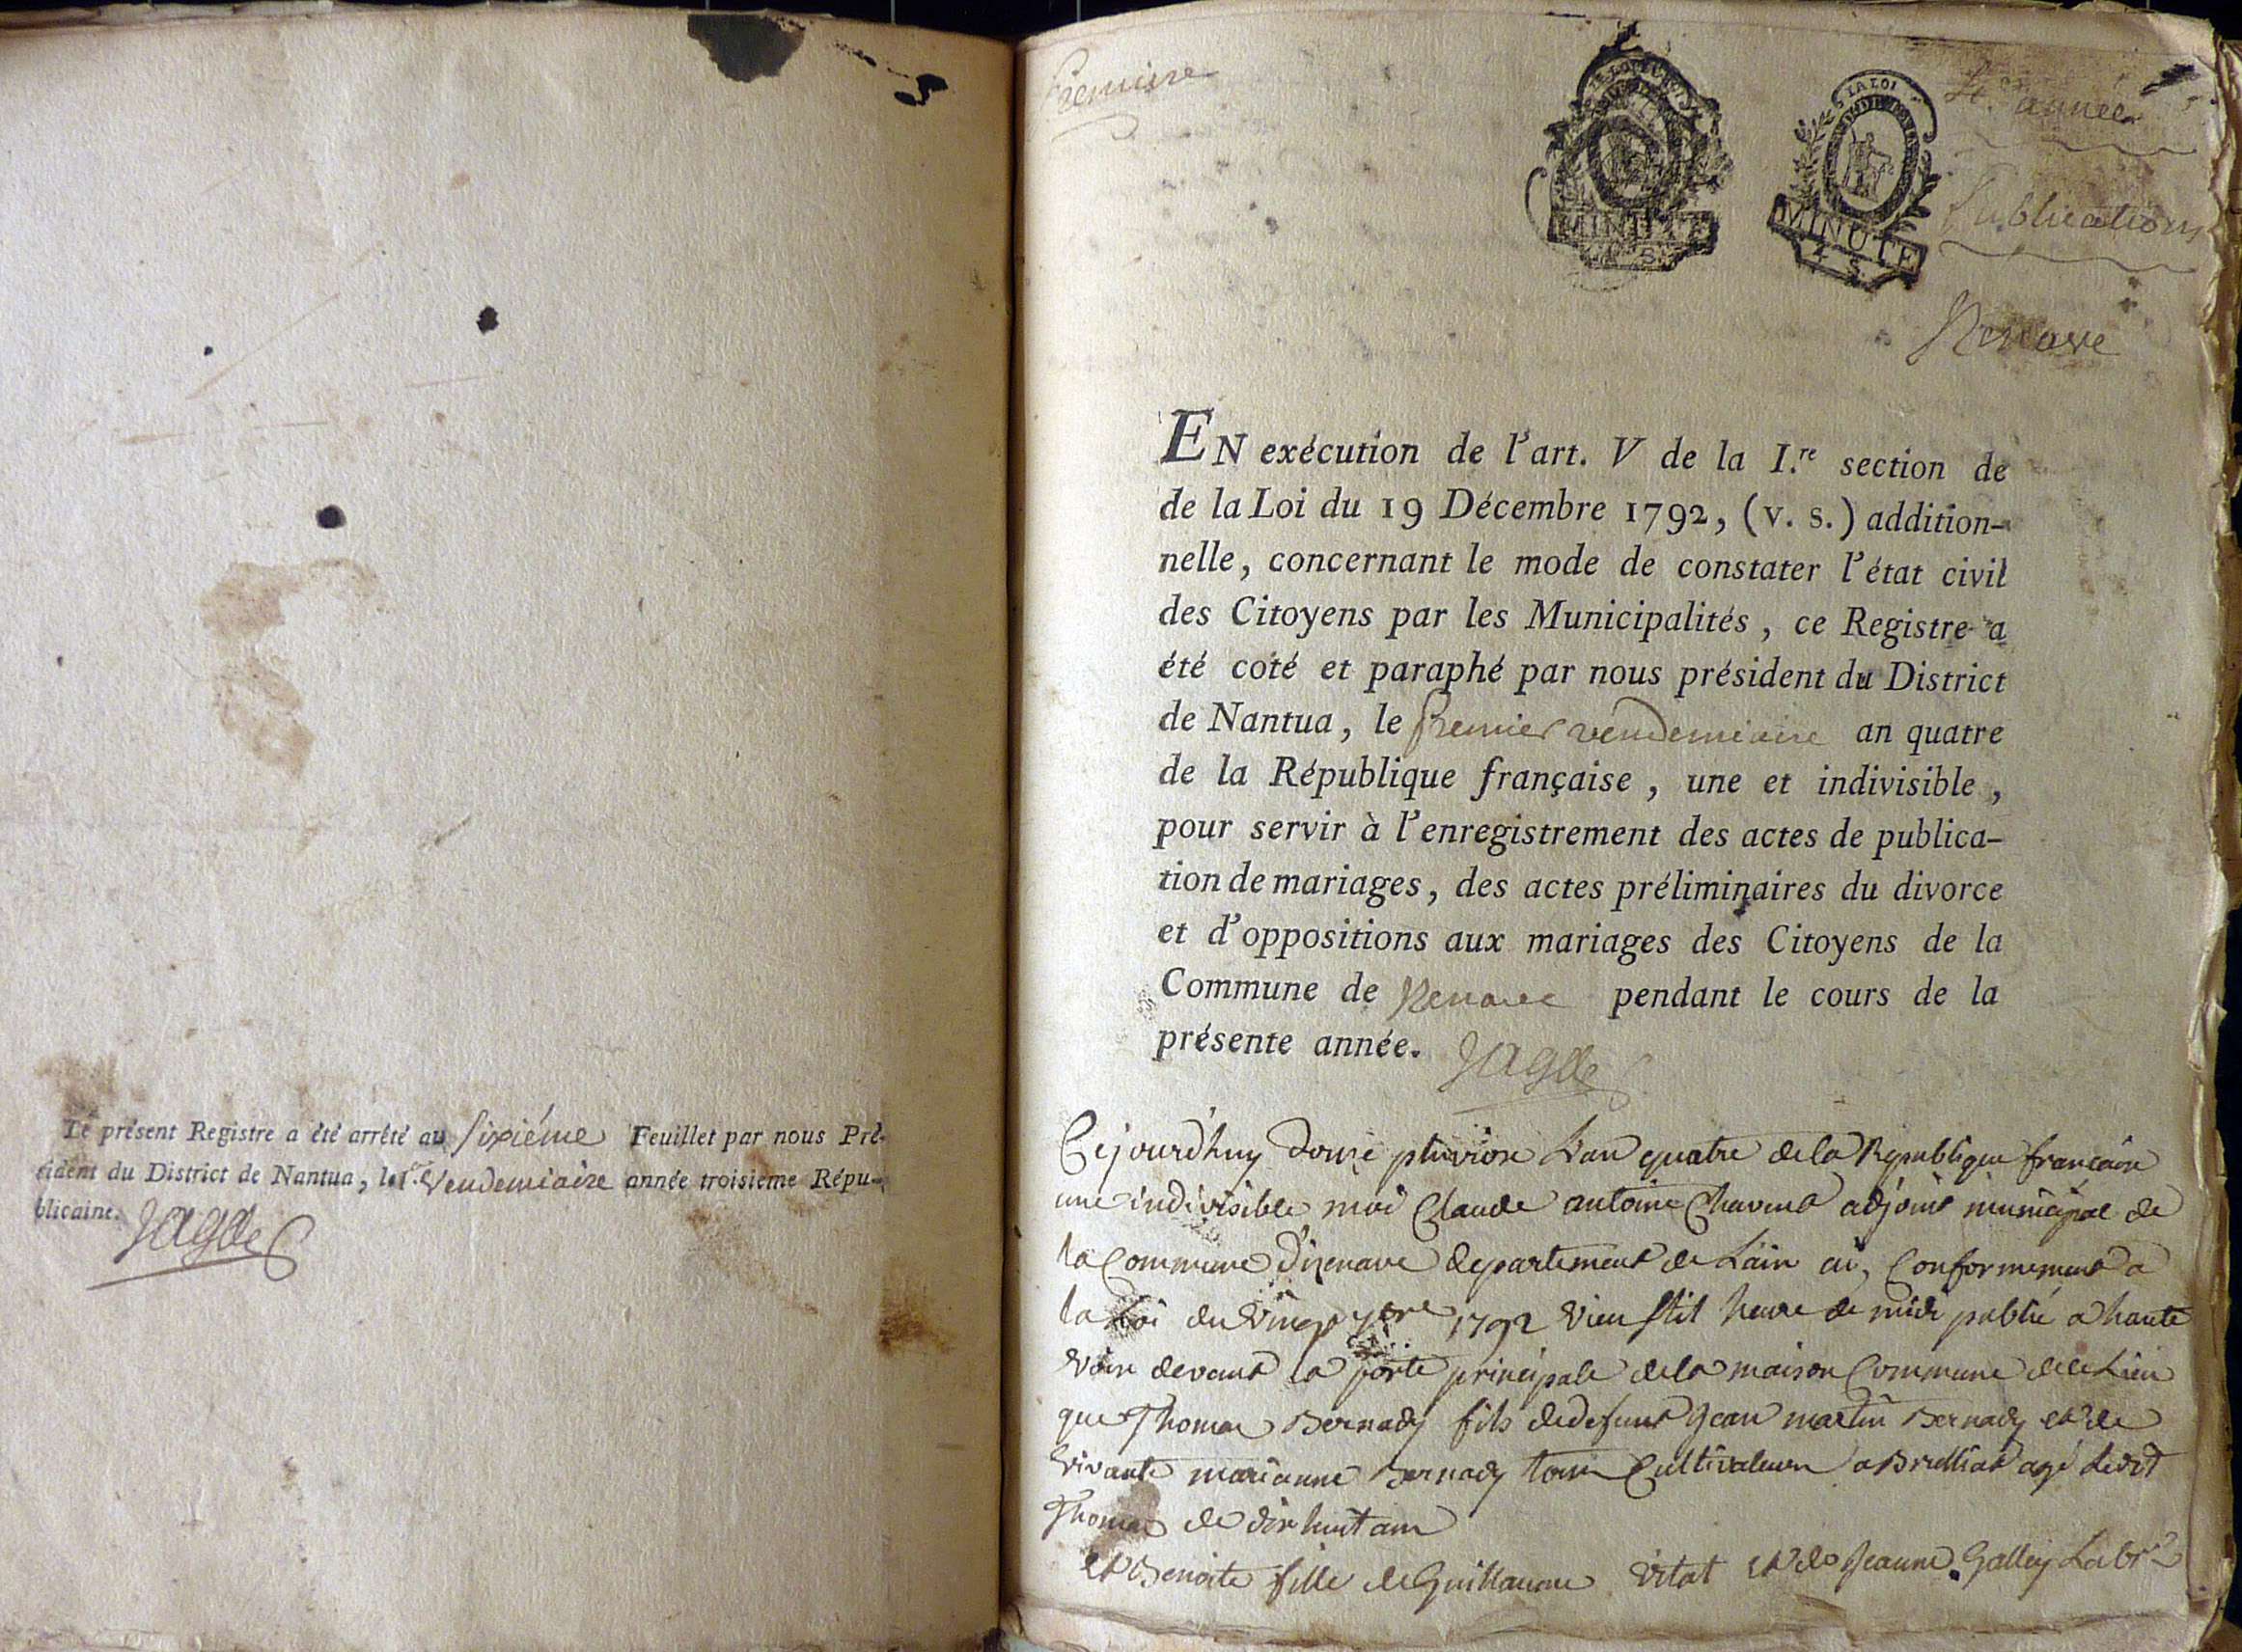 Le présent Registre a été arrêté au sixiéme Feuillet par nous Pré-
sident du District de Nantua, le 1.er Vendemiaire année troisieme Répu-
blicaine.
Jagot
Premiere
4.e année
Publications
LA LOI
MINUTE
4 S
MINUTE
4 S
Izenave
EN exécution de l'art. V de la I.re section de
de la Loi du 19 Décembre 1792, (v. s.) addition-
nelle, concernant le mode de constater l'état civil
des Citoyens par les Municipalités, ce Registre a
été coté et paraphé par nous président du District
de Nantua, le premier vendemiaire an quatre
de la République française, une et indivisible,
pour servir à l'enregistrement des actes de publica-
tion de mariages, des actes préliminaires du divorce
et d'oppositions aux mariages des Citoyens de la
Commune de Izenave pendant le cours de la
présente année.
Cejourd'huy douze pluviose L'an quatre de la Republique francaise
une indivisible moi Claude antoine Chavent adjoint municipal de
la Commune d'izenave departement de Lain ai, Conformement a
la Loi du Vingt 7bre 1792 Vieu Stil heure de midi publié a haute
Voix devant la porte principale de la maison Commune de ce Lieu
que Thomas Bernady fils de defunt Jean martin Bernady et de
Vivante marianne Bernady tous Cultivateurs a agé Ledit
Thomas de dix huit ans
et Benoite fille de Guillaume Vitat et de Jeanne Gallay Labr.